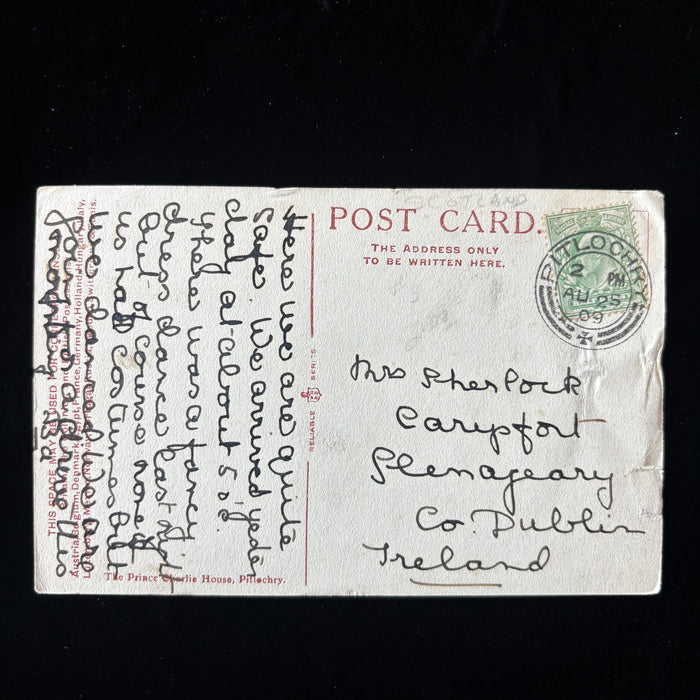 POST CARD.
THE ADDRESS ONLY
TO BE WRITTEN HERE.
SCOTLAND
PITLOCHRY
2 PM
AU 25
09
Mrs Sherlock
Carysfort
Glenageary
Co. Dublin
Ireland
RELIABLE SERIES
Here we are quite
Safe. We arrived yester
day at about 5 o'c.
There was a fancy
dress dance last night
but of course none of
us had costumes but
we danced. We are
going to
THIS SPACE MAY BE USED FOR
The Prince Charlie House, Pitlochry.